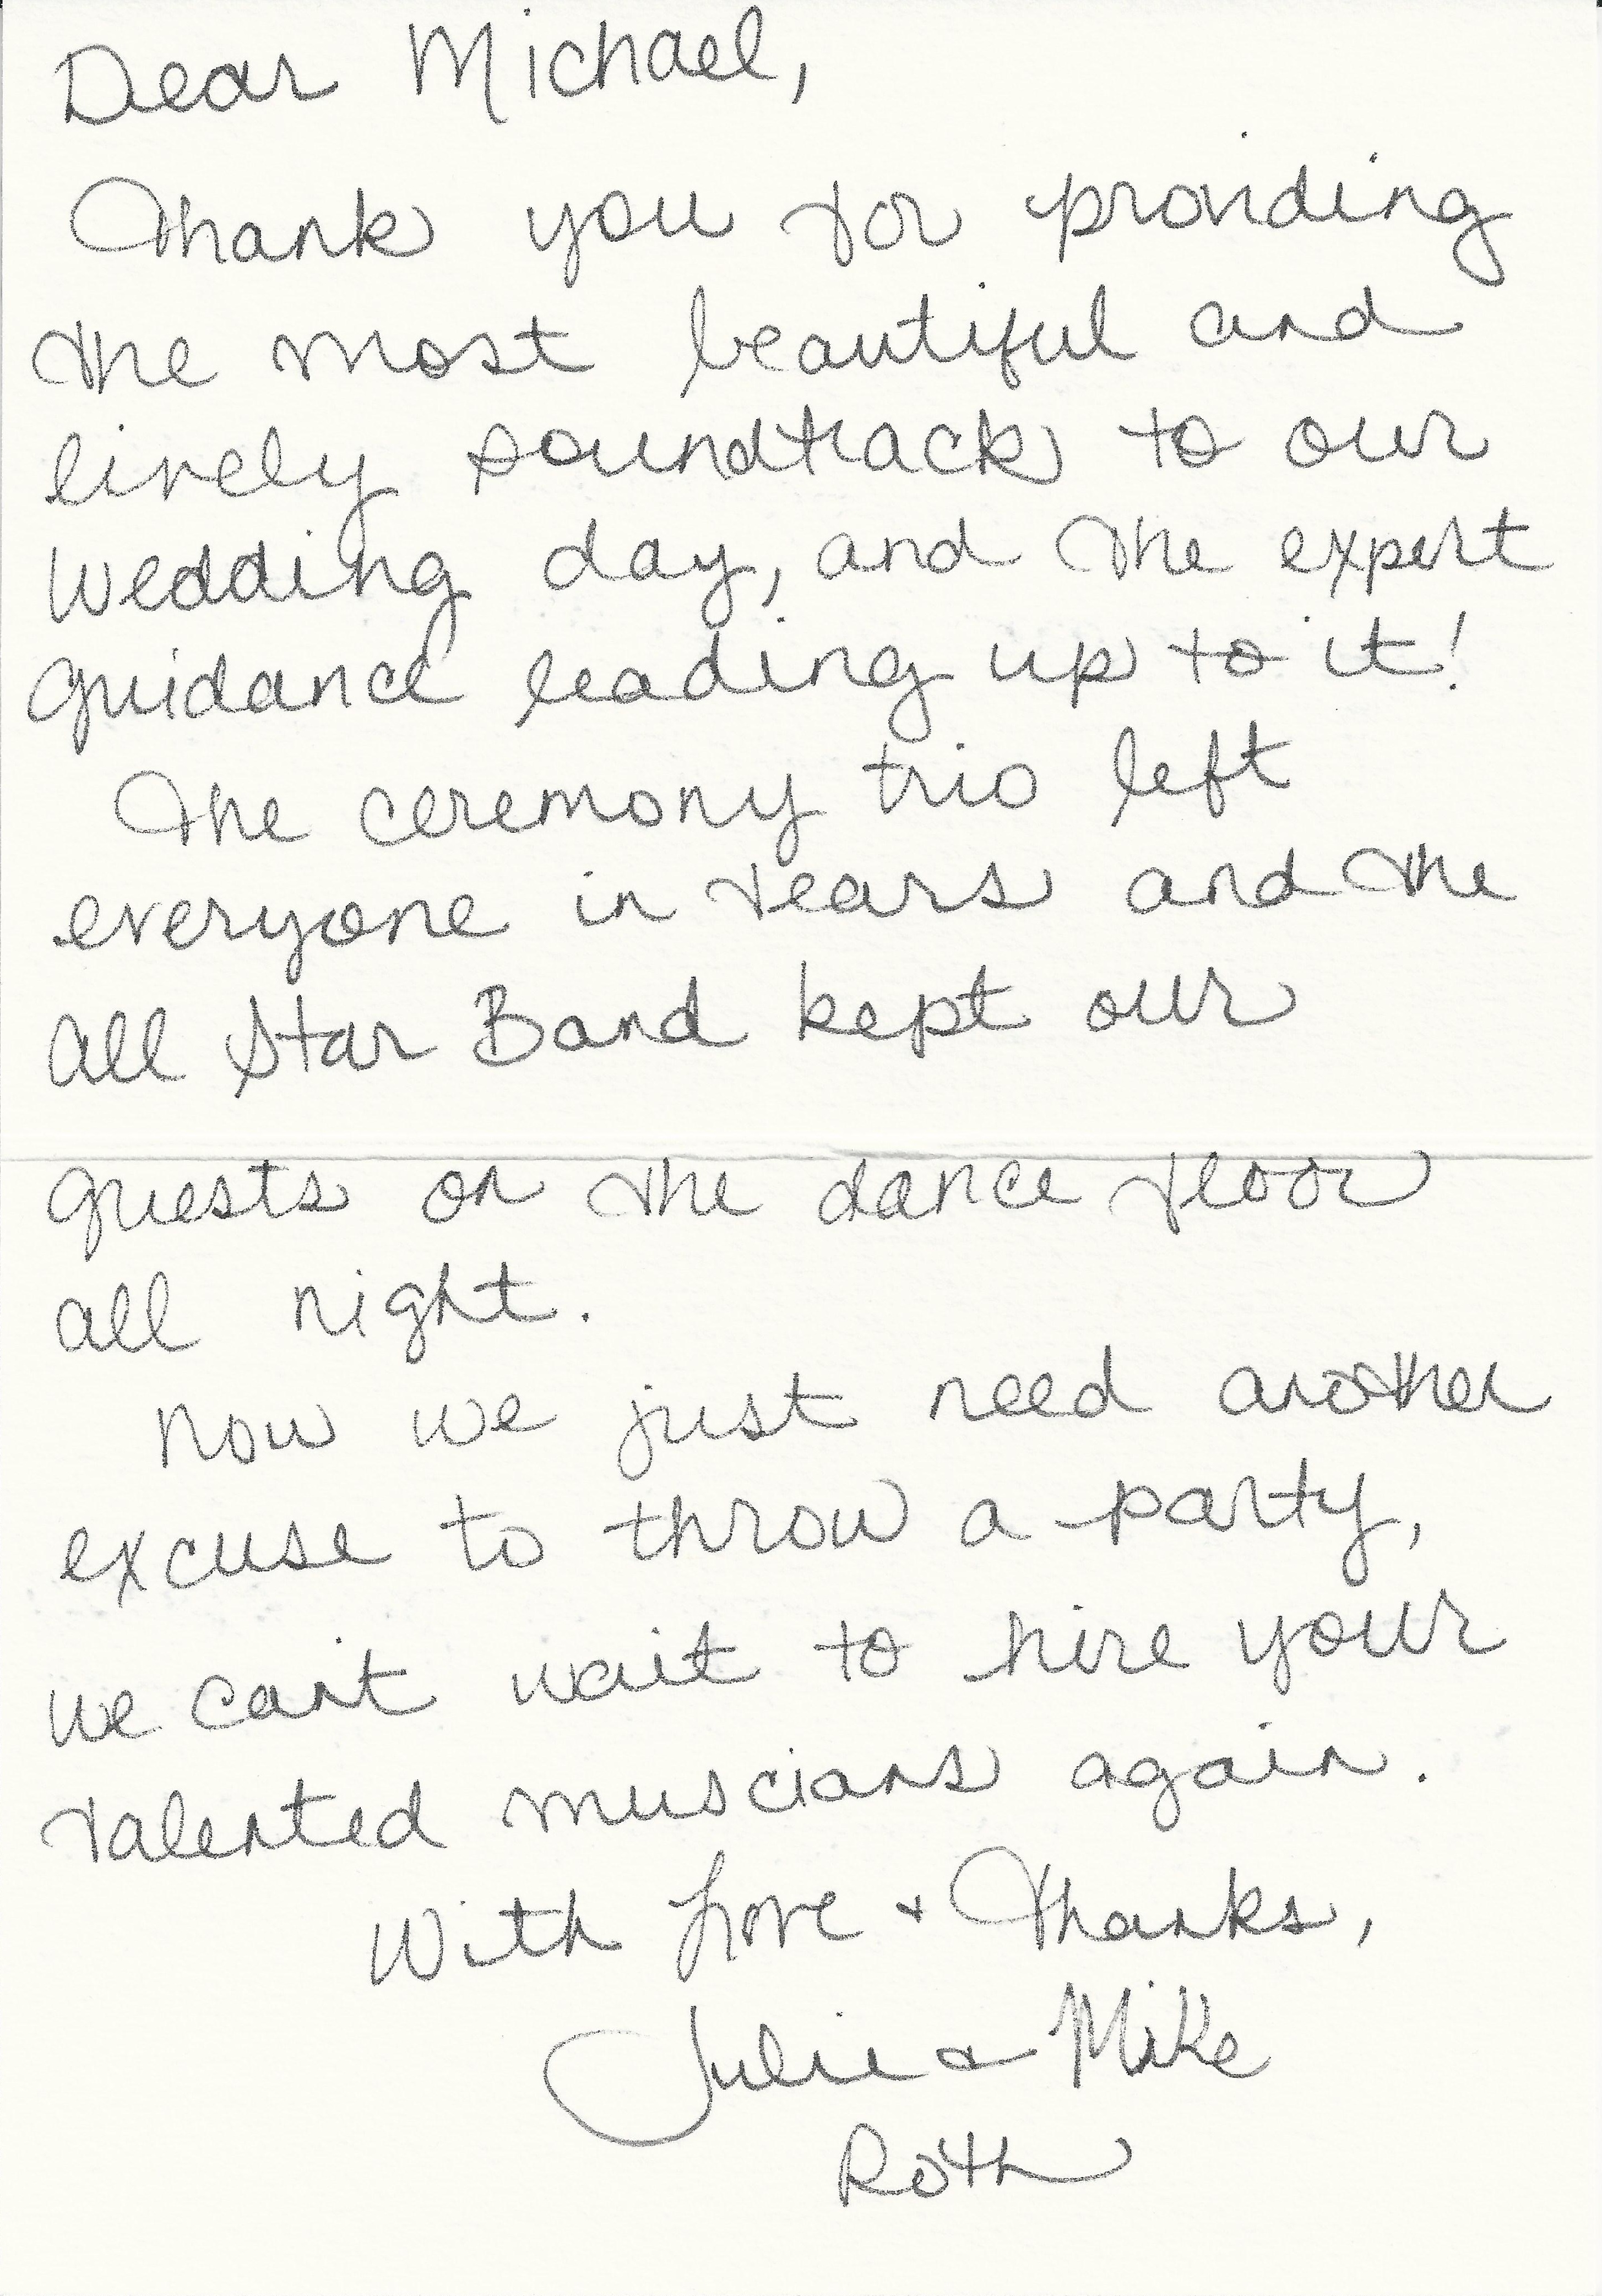 Dear Michael,
Thank you for providing
the most beautiful and
lively soundtrack to our
wedding day, and the expert
guidance leading up to it!
The ceremony trio left
everyone in tears and the
All Star Band kept our
guests on the dance floor
all night.
Now we just need another
excuse to throw a party,
we can't wait to hire your
talented muscians again.
With Love + Thanks,
Julie & Mike
Roth